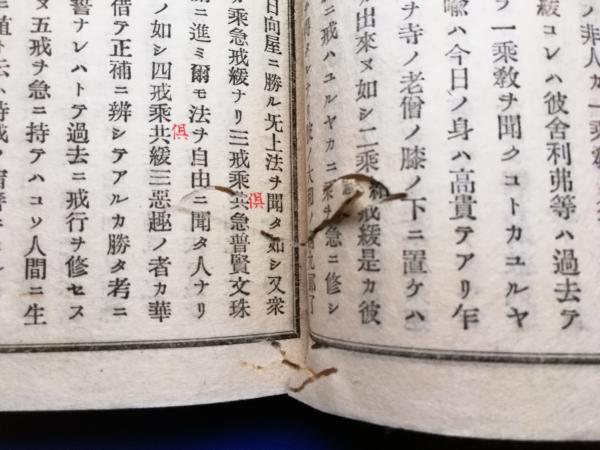 ノ非人カ一乘敎
緩コレハ彼舍利弗等ハ過去テ
ラ一乘敎ヲ聞クコトカユルヤ
喩ハ今日ノ身ハ高貴テアリ乍
ヲ寺ノ老僧ノ膝ノ下ニ置ケハ
出來ヌ如シ二乘 戒緩是カ彼
ニ戒ハユルヤカニ乘ヲ急ニ修シ
日向屋ニ勝ル无上法ヲ聞タ如シ又衆
乘急戒緩ナリ三戒乘共急普賢文珠
俱
ニ進ミ爾モ法ヲ自由ニ聞タ人ナリ
ノ如シ四戒乘共緩三惡趣ノ者カ華
俱
借テ正補ニ辨シテアルカ勝タ考ニ
誓ナレハトテ過去ニ戒行ヲ修セス
ヌ五戒ヲ急ニ持テハコソ人間ニ生